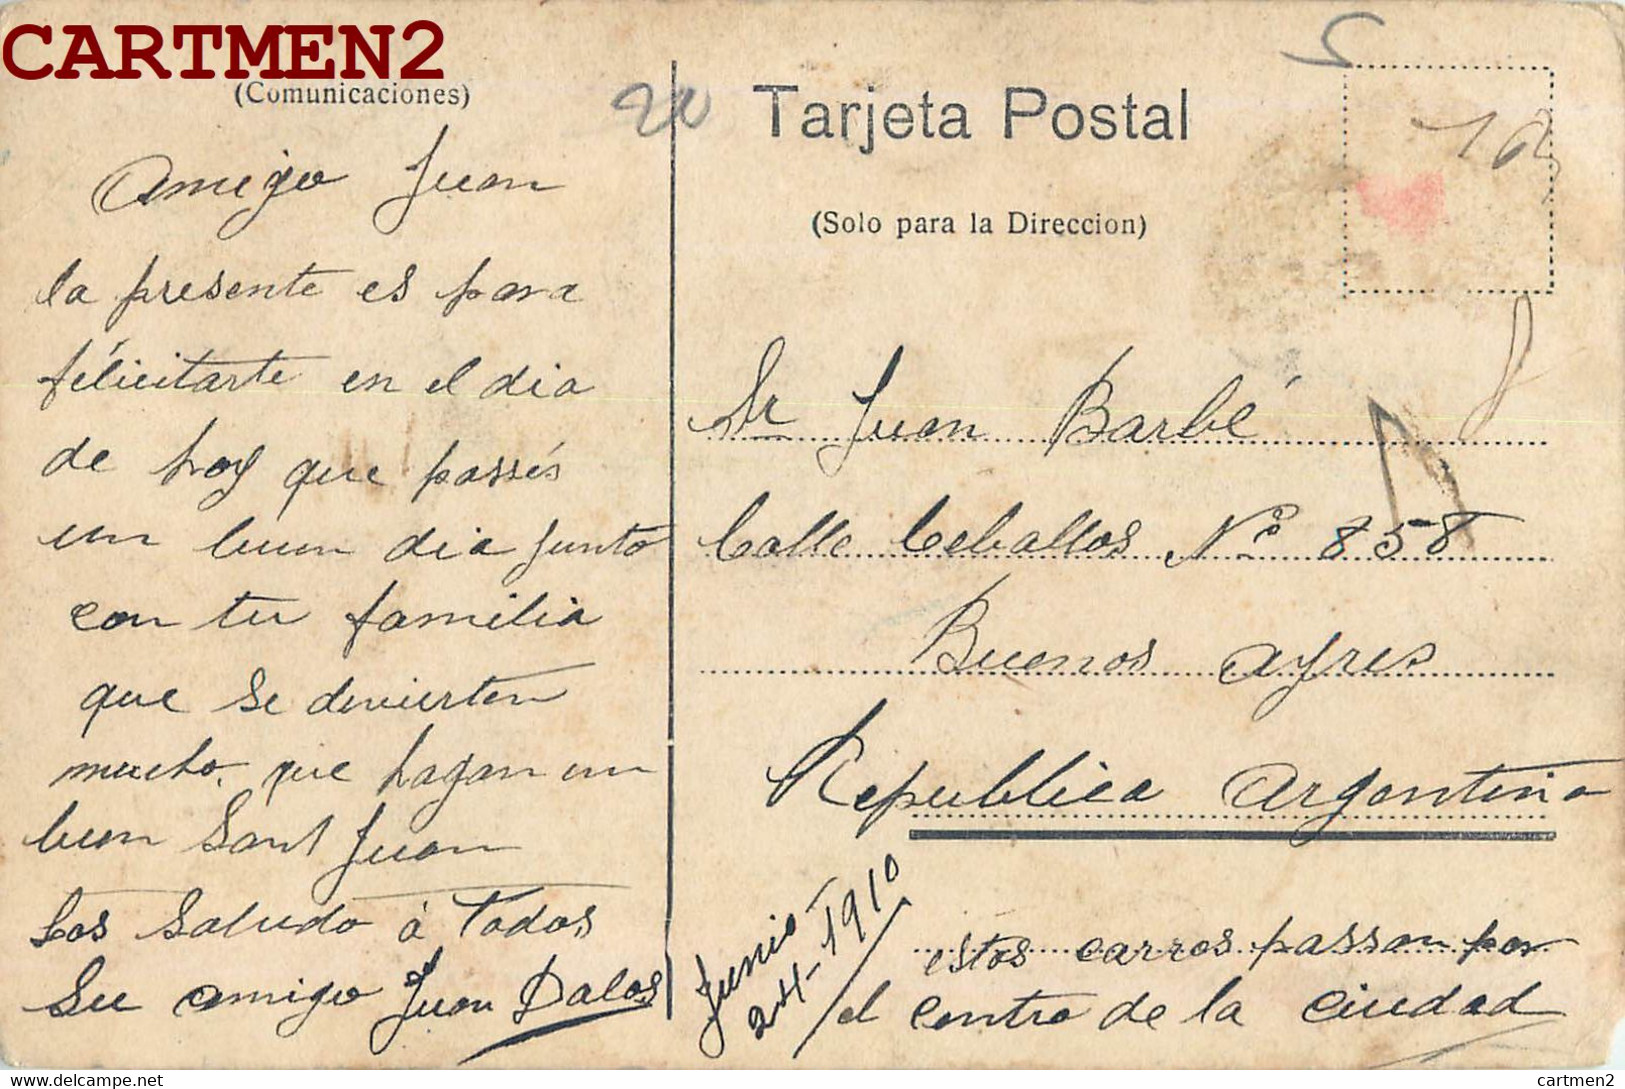 CARTMEN2
(Comunicaciones)
20
Amigo Juan
la presente es para
félicitarte en el dia
de hoy que passés
un buen dia junto
con tu familia
que se devierten
mucho. que hagan un
buen Sant Juan
Los Saludo á Todos
Su amigo Juan Dalos
Tarjeta Postal
(Solo para la Direccion)
Sr Juan Barbé
Calle Ceballos Nº 858
Buenos Ayres
Republica Argentina
Junio
24-1910
estos carros passan por
el centro de la Ciudad
cartmen2
cartmen2